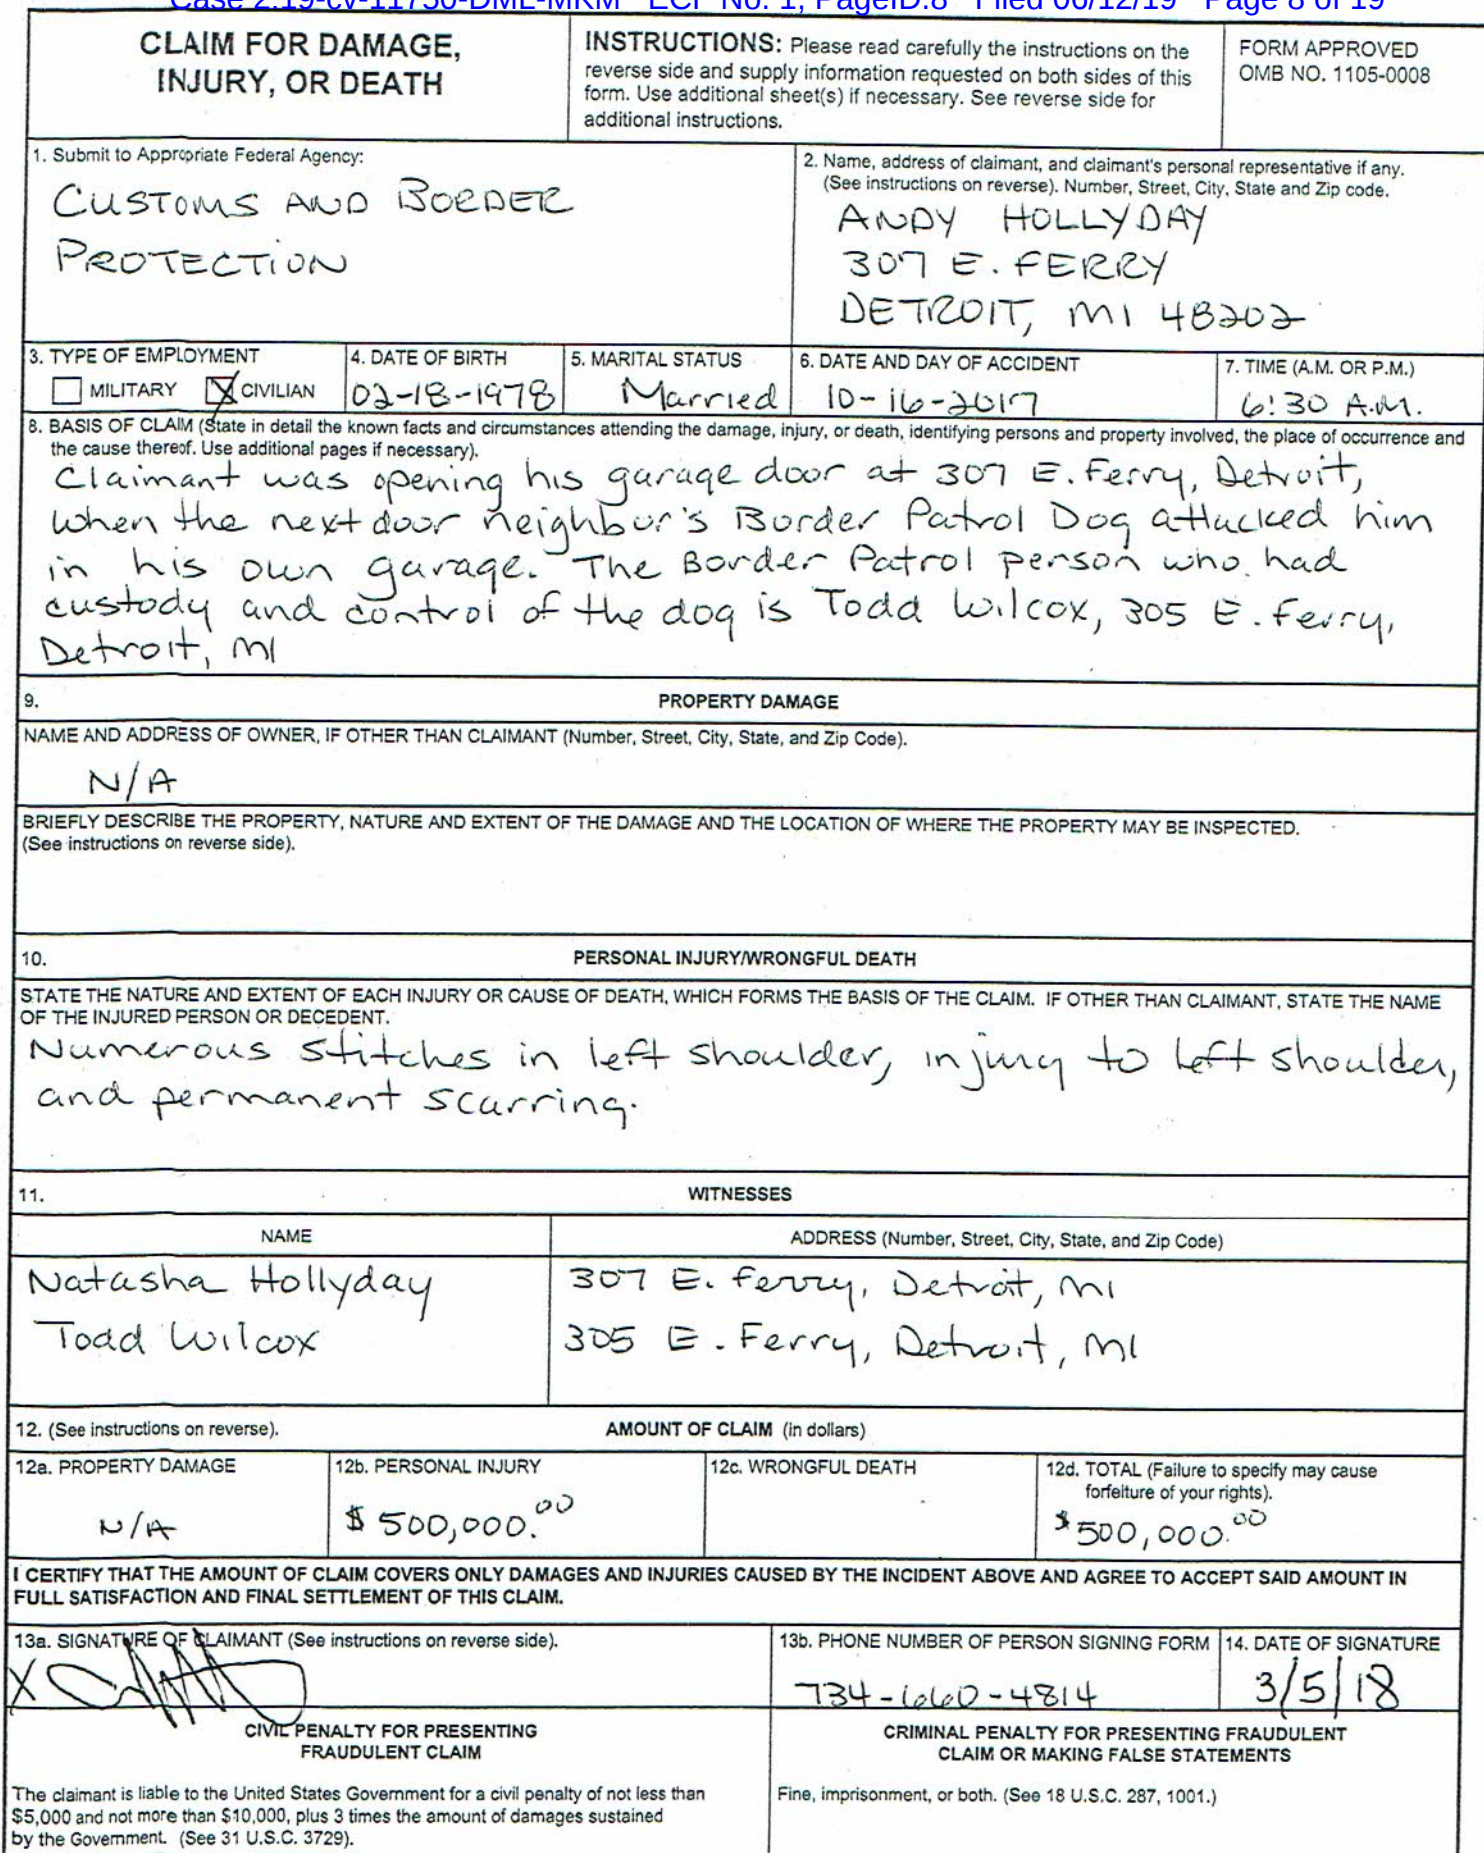 Case 2:19-cv-11750-DML-MKM ECF No. 1, PageID.8 Filed 06/12/19 Page 8 of 19
CLAIM FOR DAMAGE,
INJURY, OR DEATH
INSTRUCTIONS: Please read carefully the instructions on the
reverse side and supply information requested on both sides of this
form. Use additional sheet(s) if necessary. See reverse side for
additional instructions.
FORM APPROVED
OMB NO. 1105-0008
1. Submit to Appropriate Federal Agency:
CUSTOMS AND BORDER
PROTECTION
2. Name, address of claimant, and claimant's personal representative if any.
(See instructions on reverse). Number, Street, City, State and Zip code.
ANDY HOLLYDAY
307 E. FERRY
DETROIT, MI 48202
3. TYPE OF EMPLOYMENT
MILITARY X CIVILIAN
4. DATE OF BIRTH
02-18-1978
5. MARITAL STATUS
Married
6. DATE AND DAY OF ACCIDENT
10-16-2017
7. TIME (A.M. OR P.M.)
6:30 A.M.
8. BASIS OF CLAIM (State in detail the known facts and circumstances attending the damage, injury, or death, identifying persons and property involved, the place of occurrence and
the cause thereof. Use additional pages if necessary).
Claimant was opening his garage door at 307 E. Ferry, Detroit,
when the next door neighbor's Border Patrol Dog attacked him
in his own garage. The Border Patrol person who had
custody and control of the dog is Todd Wilcox, 305 E. Ferry,
Detroit, MI
9. PROPERTY DAMAGE
NAME AND ADDRESS OF OWNER, IF OTHER THAN CLAIMANT (Number, Street, City, State, and Zip Code).
N/A
BRIEFLY DESCRIBE THE PROPERTY, NATURE AND EXTENT OF THE DAMAGE AND THE LOCATION OF WHERE THE PROPERTY MAY BE INSPECTED.
(See instructions on reverse side).
10. PERSONAL INJURY/WRONGFUL DEATH
STATE THE NATURE AND EXTENT OF EACH INJURY OR CAUSE OF DEATH, WHICH FORMS THE BASIS OF THE CLAIM. IF OTHER THAN CLAIMANT, STATE THE NAME
OF THE INJURED PERSON OR DECEDENT.
Numerous stitches in left shoulder, injury to left shoulder,
and permanent scarring.
11. WITNESSES
NAME
ADDRESS (Number, Street, City, State, and Zip Code)
Natasha Hollyday 307 E. Ferry, Detroit, MI
Todd Wilcox 305 E. Ferry, Detroit, MI
12. (See instructions on reverse). AMOUNT OF CLAIM (in dollars)
12a. PROPERTY DAMAGE
N/A
12b. PERSONAL INJURY
$500,000.00
12c. WRONGFUL DEATH
12d. TOTAL (Failure to specify may cause
forfeiture of your rights).
$500,000.00
I CERTIFY THAT THE AMOUNT OF CLAIM COVERS ONLY DAMAGES AND INJURIES CAUSED BY THE INCIDENT ABOVE AND AGREE TO ACCEPT SAID AMOUNT IN
FULL SATISFACTION AND FINAL SETTLEMENT OF THIS CLAIM.
13a. SIGNATURE OF CLAIMANT (See instructions on reverse side).
X
13b. PHONE NUMBER OF PERSON SIGNING FORM
734-660-4814
14. DATE OF SIGNATURE
3/5/18
CIVIL PENALTY FOR PRESENTING
FRAUDULENT CLAIM
The claimant is liable to the United States Government for a civil penalty of not less than
$5,000 and not more than $10,000, plus 3 times the amount of damages sustained
by the Government. (See 31 U.S.C. 3729).
CRIMINAL PENALTY FOR PRESENTING FRAUDULENT
CLAIM OR MAKING FALSE STATEMENTS
Fine, imprisonment, or both. (See 18 U.S.C. 287, 1001.)